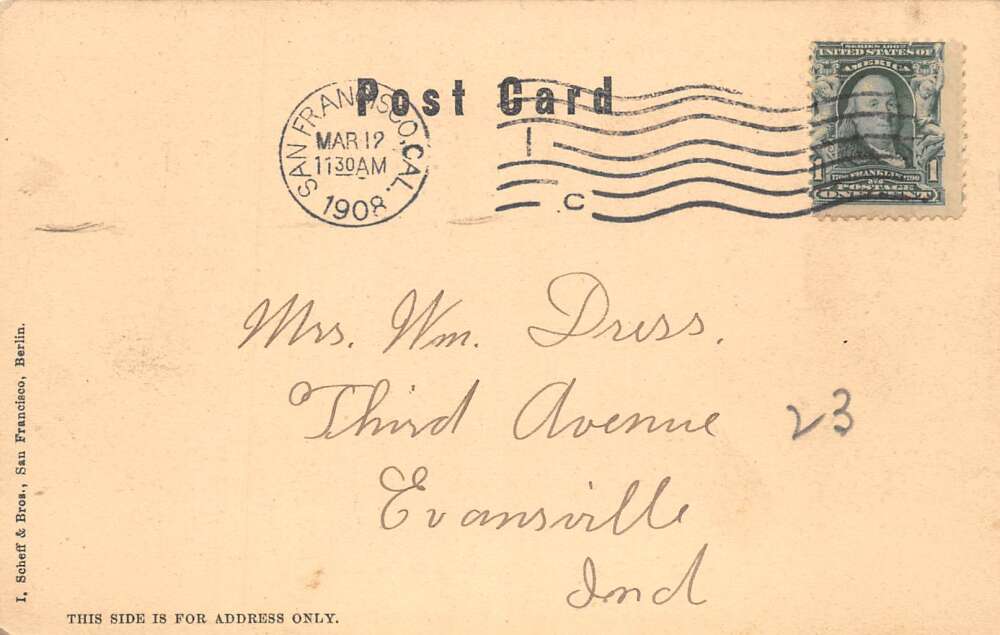 Post Card
SAN FRANCISCO, CAL.
MAR 12
11 30 AM
1908
1
C
SERIES 1902
UNITED STATES OF
AMERICA
1 1
1706 FRANKLIN 1790
POSTAGE
ONE CENT
Mrs. Wm. Dress.
Third Avenue 23
Evansville
Ind
I. Scheff & Bros., San Francisco, Berlin.
THIS SIDE IS FOR ADDRESS ONLY.